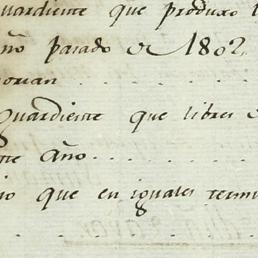 uardiente que produxo l
año pasado de 1802
orian . . . . . .
guardiente que libres d
te año . . . . . .
io que en iguales termi
. . . . . .